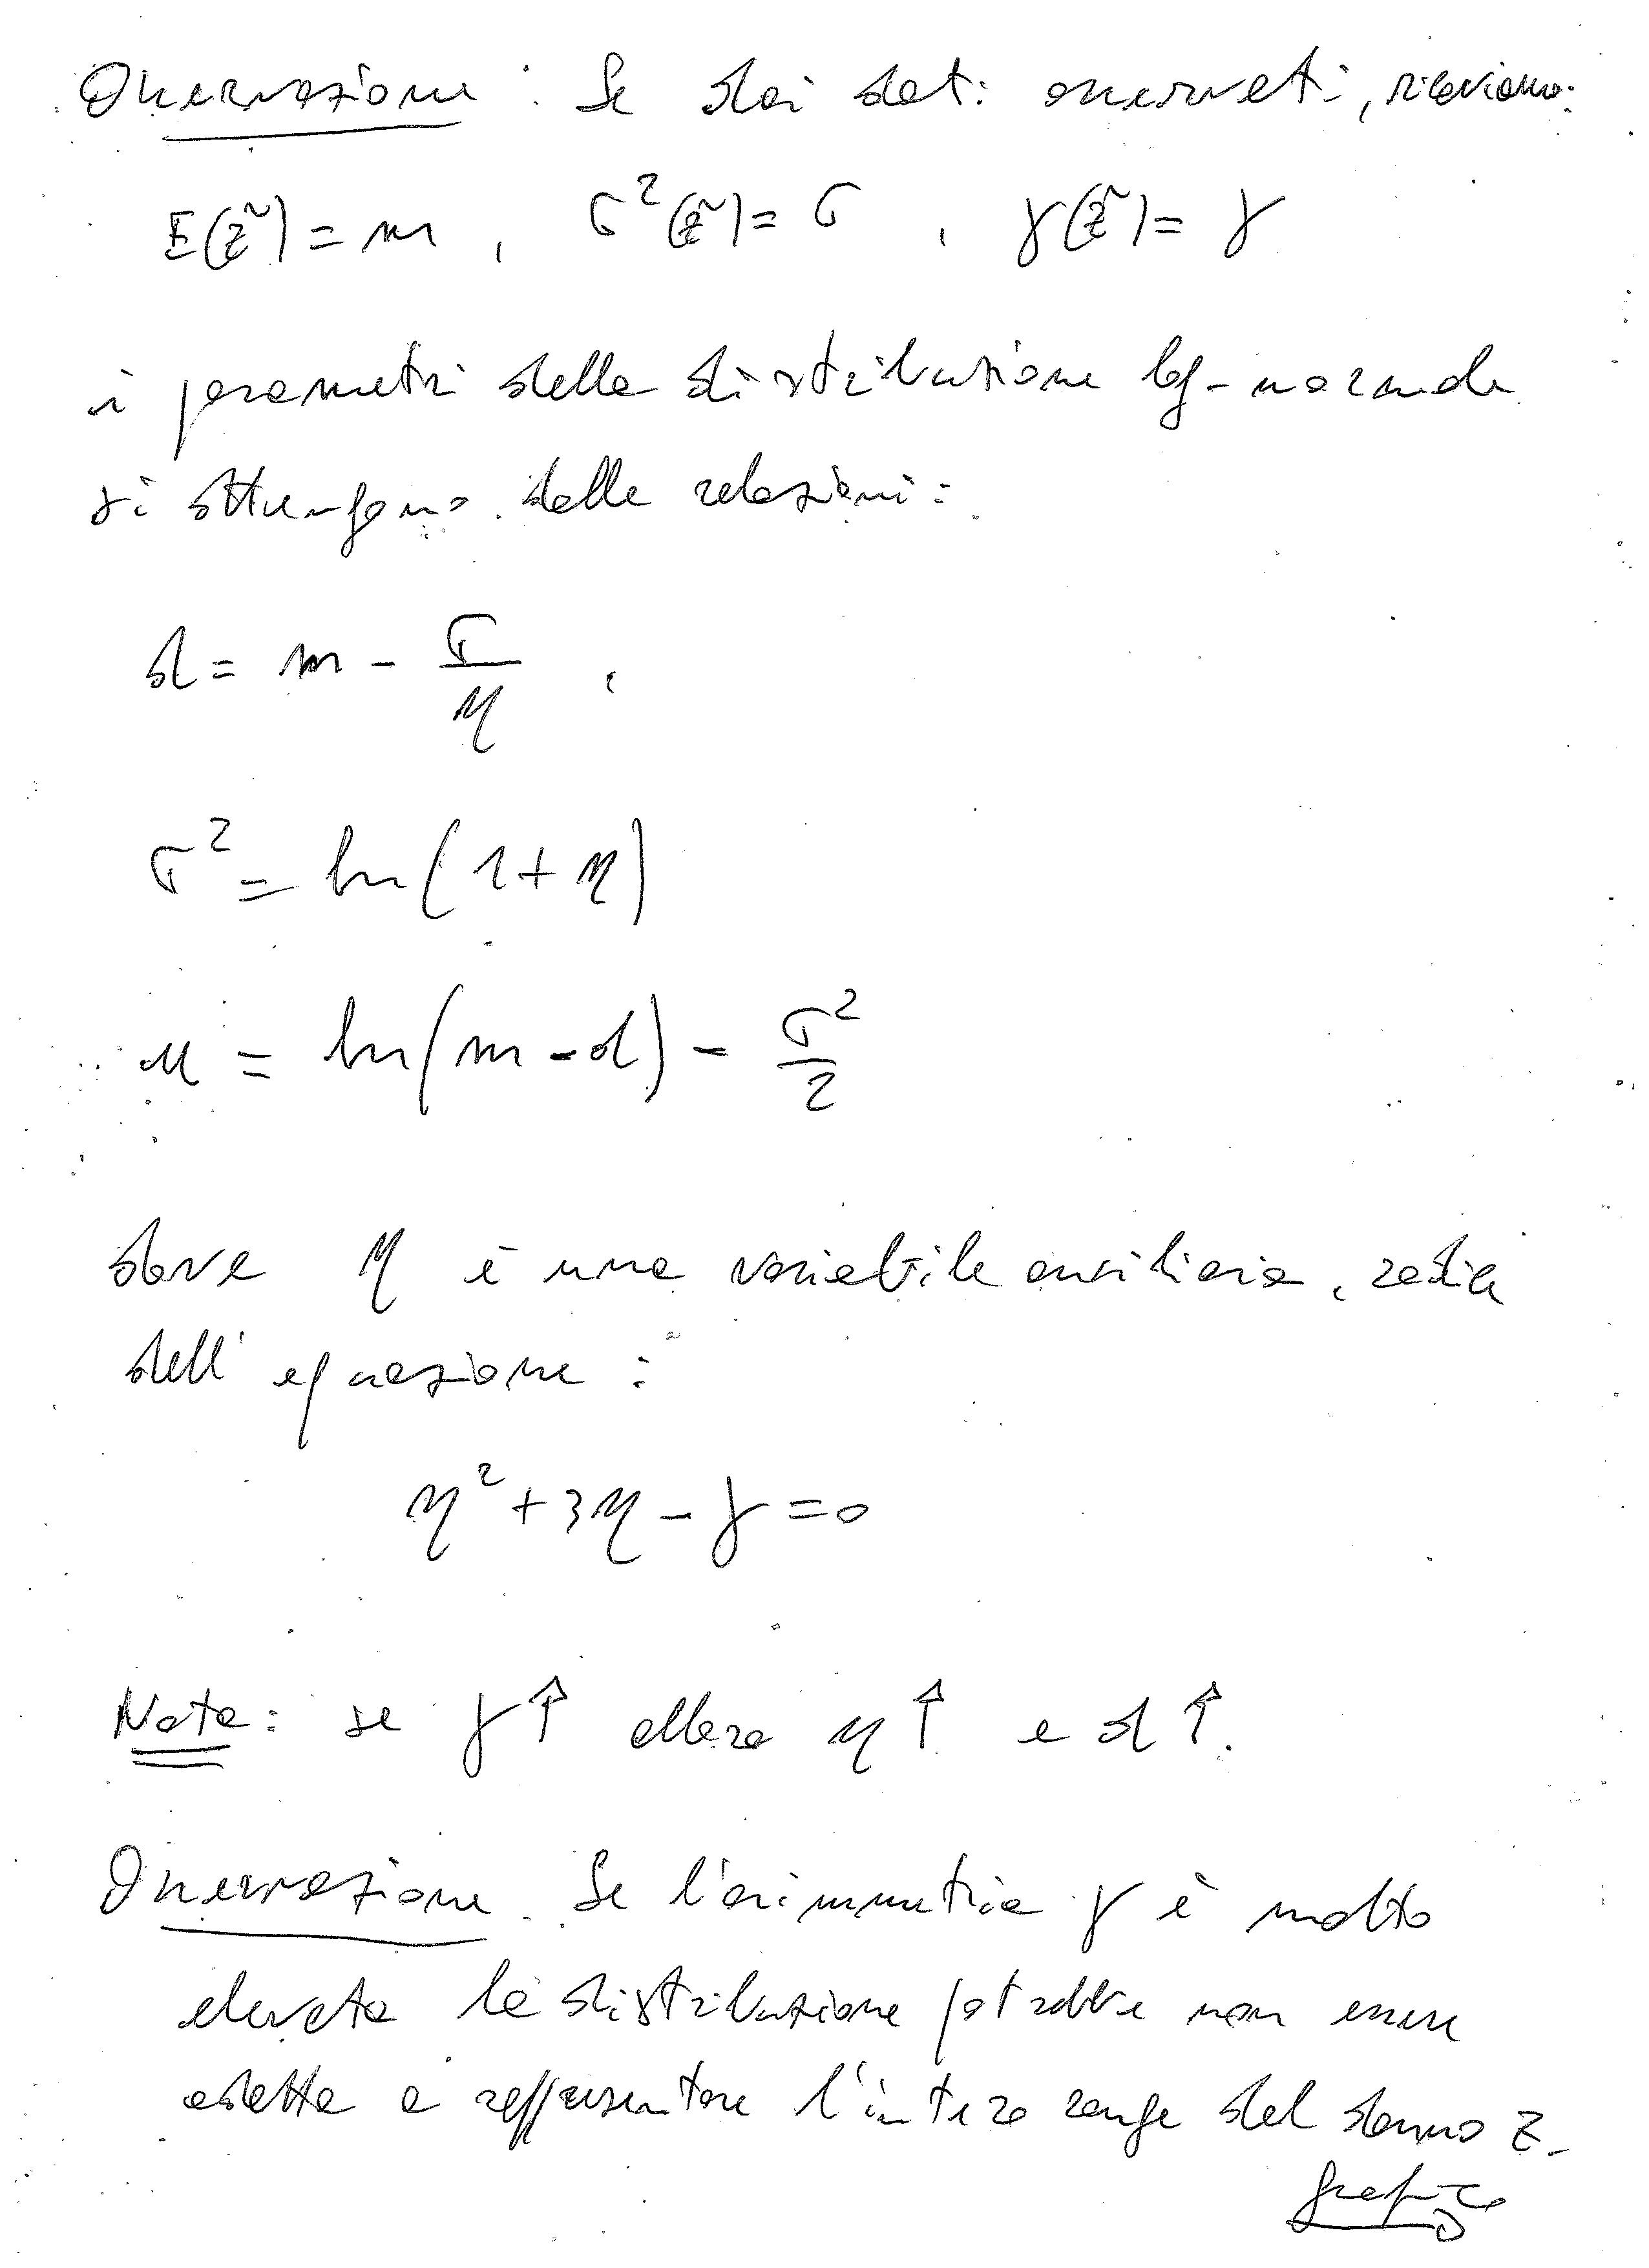 Osservazione : Se dai dati osservati, rileviamo:
E(z̃) = m , σ²(z̃) = σ , γ(z̃) = γ
i parametri della distribuzione log-normale
si ottengono dalle relazioni :
d = m - σ/η ,
σ² = ln(1+η)
μ = ln(m-d) - σ²/2
dove η è una variabile ausiliaria, radice
dell'equazione :
η² + 3η - γ = 0
Nota : se γ↑ allora η↑ e d↑.
Osservazione. Se l'asimmetria γ è molto
elevata la distribuzione potrebbe non essere
adatta a rappresentare l'intero range del danno z.
grafico